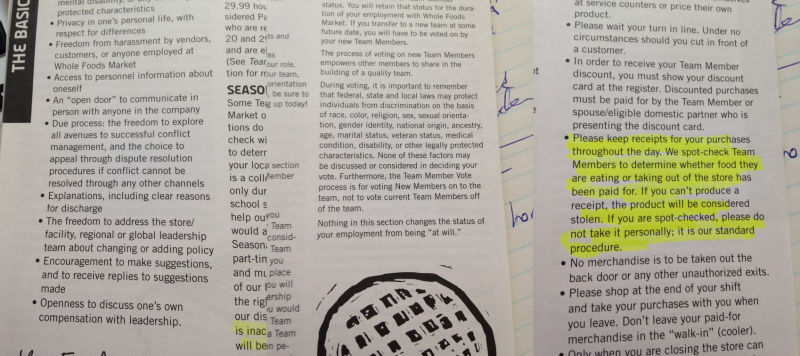 THE BASIC
protected characteristics
• Privacy in one's personal life, with
respect for differences
• Freedom from harassment by vendors,
customers, or anyone employed at
Whole Foods Market
• Access to personnel information about
oneself
• An "open door" to communicate in
person with anyone in the company
• Due process: the freedom to explore
all avenues to successful conflict
management, and the choice to
appeal through dispute resolution
procedures if conflict cannot be
resolved through any other channels
• Explanations, including clear reasons
for discharge
• The freedom to address the store/
facility, regional or global leadership
team about changing or adding policy
• Encouragement to make suggestions,
and to receive replies to suggestions
made
• Openness to discuss one's own
compensation with leadership.
29.99 hou
sidered Pa
who are re
20 and 2
and are el
(See Tear
tion for m
SEASO
Some Te
Market o
tions do
check wi
to deterr
your loca
is a coll
only dur
school s
help ou
would a
Season
part-tin
and mu
of our
the rig
our dis
is inac
will be
ts and
our role.
ur team,
orientation
be sure to
up today!
section
ember
you
Team
consid-
Team
you
place
ou will
ership
u would
Team
a Team
n pe-
status. You will retain that status for the dura-
tion of your employment with Whole Foods
Market. If you transfer to a new team at some
future date, you will have to be voted on by
your new Team Members.
The process of voting on new Team Members
empowers other members to share in the
building of a quality team.
During voting, it is important to remember
that federal, state and local laws may protect
individuals from discrimination on the basis
of race, color, religion, sex, sexual orienta-
tion, gender identity, national origin, ancestry,
age, marital status, veteran status, medical
condition, disability, or other legally protected
characteristics. None of these factors may
be discussed or considered in deciding your
vote. Furthermore, the Team Member Vote
process is for voting New Members on to the
team, not to vote current Team Members off
of the team.
Nothing in this section changes the status of
your employment from being "at will."
at service counters or price their own
product.
• Please wait your turn in line. Under no
circumstances should you cut in front of
a customer.
• In order to receive your Team Member
discount, you must show your discount
card at the register. Discounted purchases
must be paid for by the Team Member or
spouse/eligible domestic partner who is
presenting the discount card.
• Please keep receipts for your purchases
throughout the day. We spot-check Team
Members to determine whether food they
are eating or taking out of the store has
been paid for. If you can't produce a
receipt, the product will be considered
stolen. If you are spot-checked, please do
not take it personally; it is our standard
procedure.
• No merchandise is to be taken out the
back door or any other unauthorized exits.
• Please shop at the end of your shift
and take your purchases with you when
you leave. Don't leave your paid-for
merchandise in the "walk-in" (cooler).
• Only when you are closing the store can